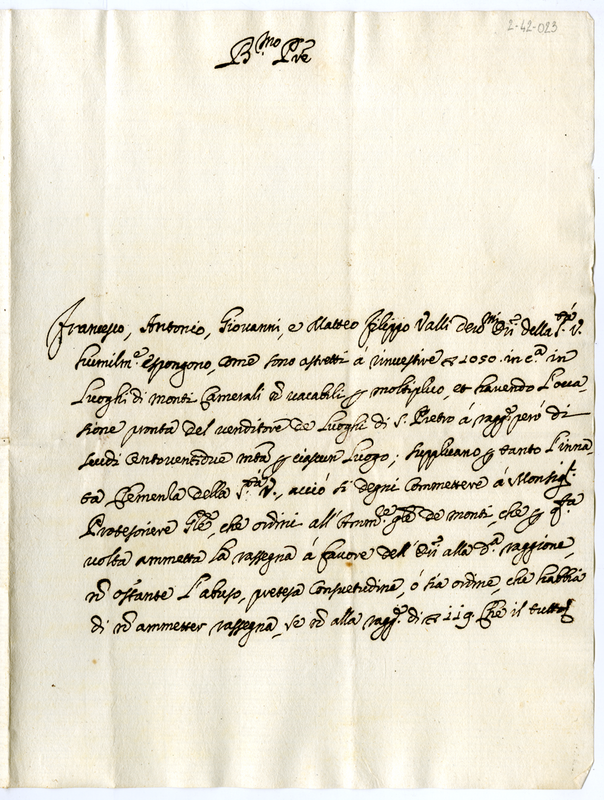 2-42-023
B.mo P.re
Francesco, Antonio, Giovanni, e Matteo Filippo Valli devo.mi Or.i della S.tà V.
humilm.e espongono, come sono astretti a investire ▽ 1050. in c.a in
Luoghi di monti Camerali nõ vacabili p moltiplico, et havendo l'occa
sione pronta del venditore de Luoghi di S. Pietro á ragg.e però di
scudi centoventidue mta p ciascun luogo; supplicano p tanto l'inna
ta Clemenza della S.tà V., acció si degni commettere á Monsig.r
Protesoriere G'le, che ordini all'Amm.re g'le de monti, che p q.sta
volta ammetta la rassegna á favore dell' Or.i alla d.a raggione,
nõ ostante l'abuso, pretesa consuetudine, ó sia ordine, che habbia
di nõ ammetter rassegna, se nõ alla ragg.e di ▽ 119. Che il tutto